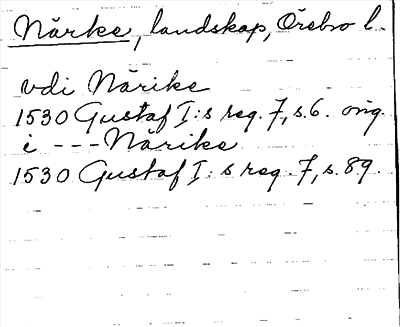 Närke, landskap, Örebro l.
vdi Närike
1530 Gustaf I:s reg. 7, s. 6. orig.
i --- Närike
1530 Gustaf I:s reg. 7, s. 89.